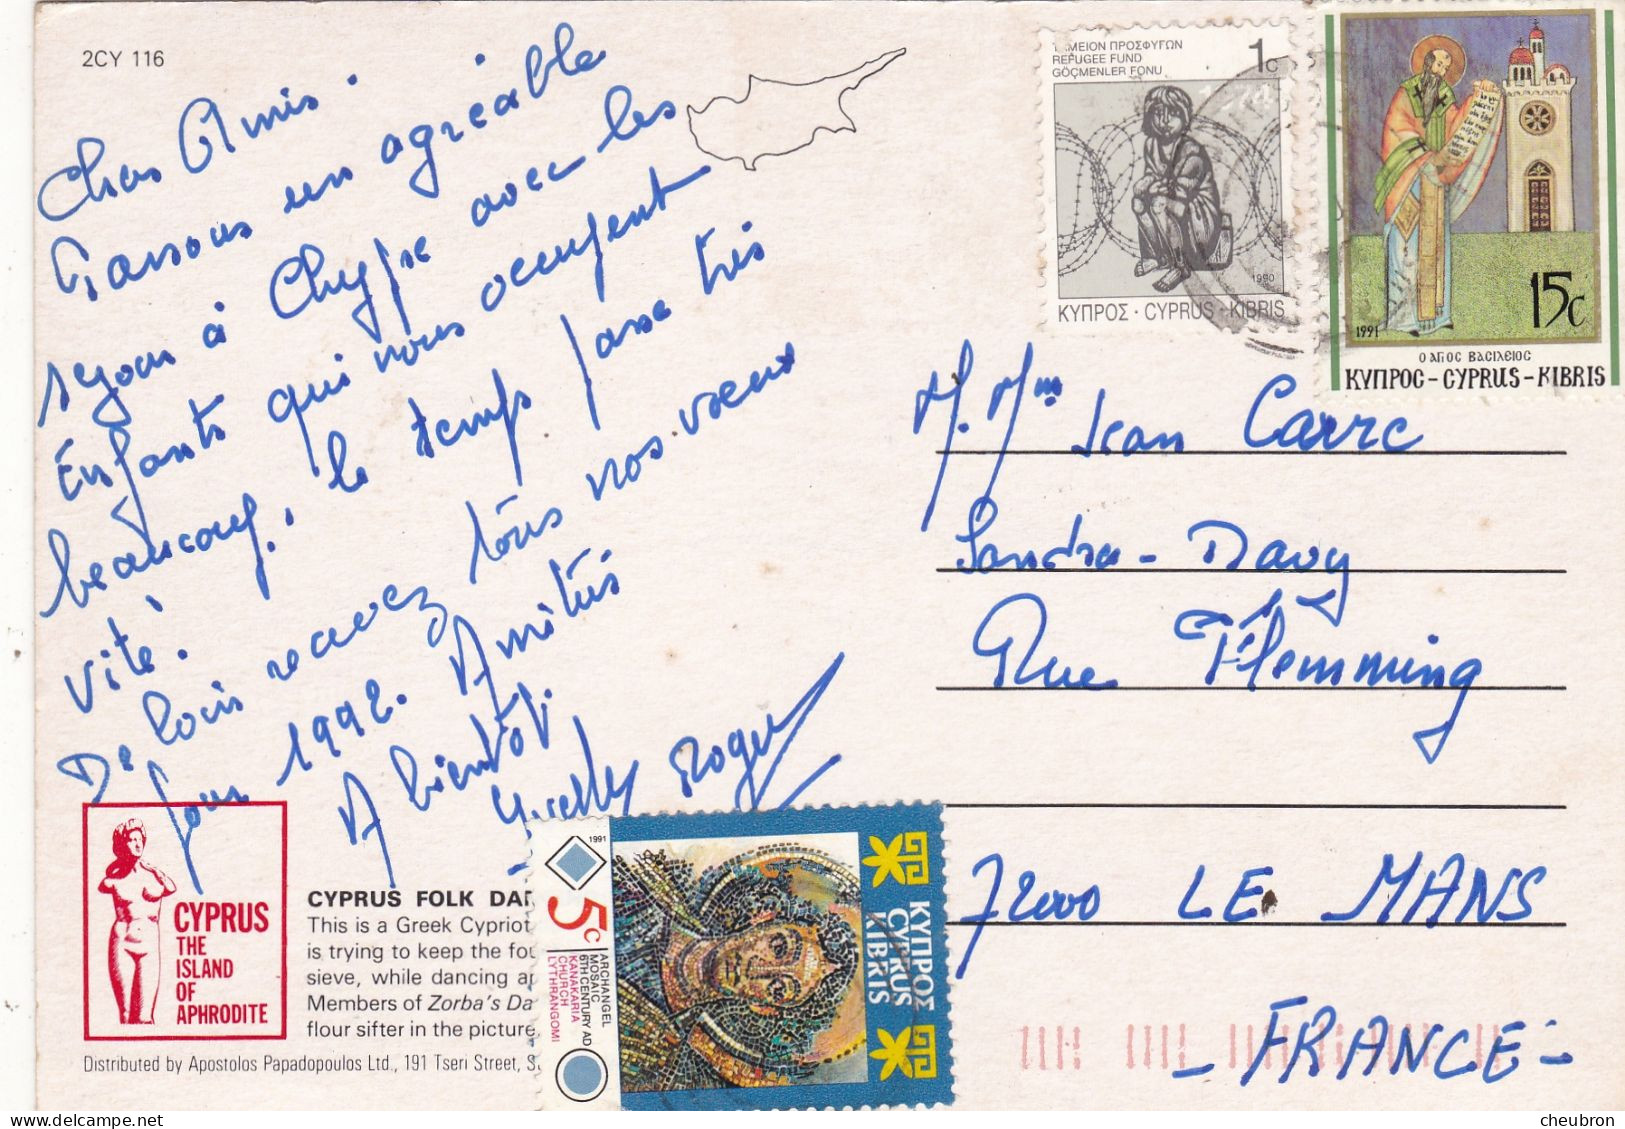 2CY 116
Chers Amis.
Passons un agréable
séjour à Chypre avec les
Enfants qui nous occupent
beaucoup, le temps passe très
vite.
De loin recevez tous nos voeux
pour 1992. Amitiés
A bientôt.
Roger
ΤΑΜΕΙΟΝ ΠΡΟΣΦΥΓΩΝ
REFUGEE FUND
GÖÇMENLER FONU
1c
1990
ΚΥΠΡΟΣ · CYPRUS · KIBRIS
15c
1991
Ο ΑΓΙΟΣ ΒΑΣΙΛΕΙΟΣ
ΚΥΠΡΟC - CYPRUS - KIBRIS
M. Mme Jean Carre
Sandra - Davy
Rue Flemming
72000 LE MANS
- FRANCE -
CYPRUS
THE
ISLAND
OF
APHRODITE
CYPRUS FOLK DAN
This is a Greek Cypriot
is trying to keep the fou
sieve, while dancing ap
Members of Zorba's Da
flour sifter in the picture
Distributed by Apostolos Papadopoulos Ltd., 191 Tseri Street, S
1991
5c
ARCHANGEL
MOSAIC
6TH CENTURY AD
KANAKARIA
CHURCH
LYTHRANGOMI
ΚΥΠΡΟΣ
CYPRUS
KIBRIS
cheubron